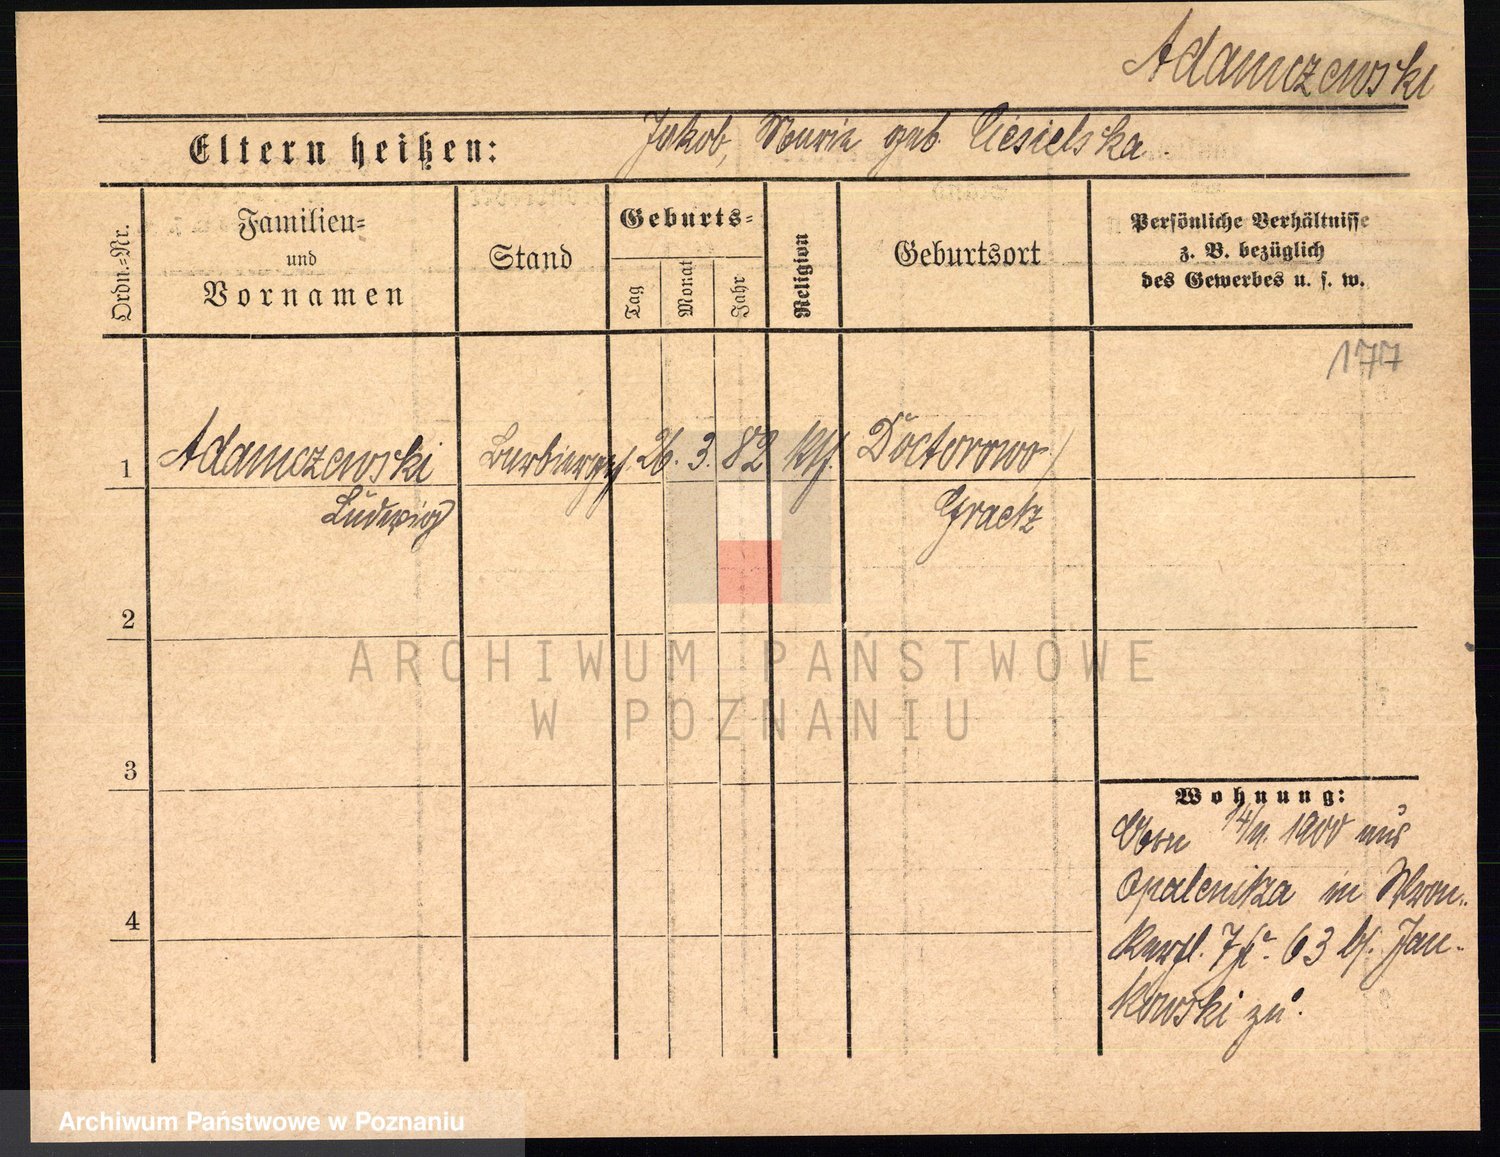 Adamczewski
Eltern heißen: Jakob, Maria geb. Ciesielska
Ordn.=Nr.
Familien=
und
Vornamen
Stand
Geburts=
Tag
Monat
Jahr
Religion
Geburtsort
Persönliche Verhältnisse
z. B. bezüglich
des Gewerbes u. s. w.
177
1 Adamczewski Barbiergeh. 26. 3. 82 kth. Doctorowo/
Ludwig Graetz
2
ARCHIWUM PAŃSTWOWE
W POZNANIU
3
Wohnung:
14/11. 1900 aus
Opalenitza in Wron-
7 63 b. Jan-
kowski zu.
4
Archiwum Państwowe w Poznaniu